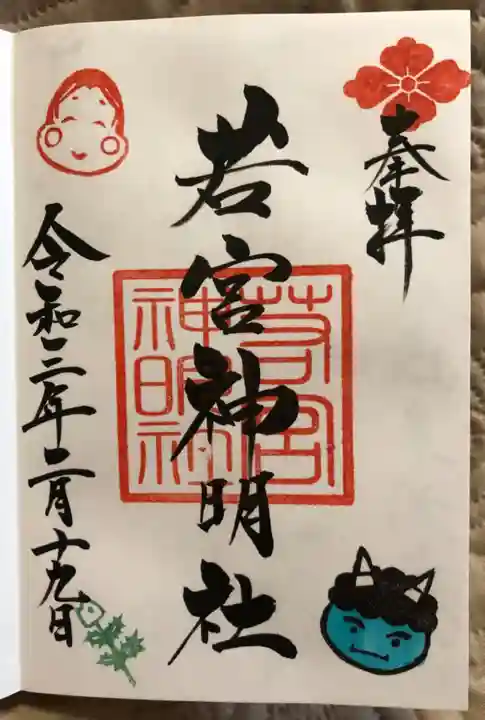 奉拝
若宮神明社
若宮神明社
令和二年二月十九日